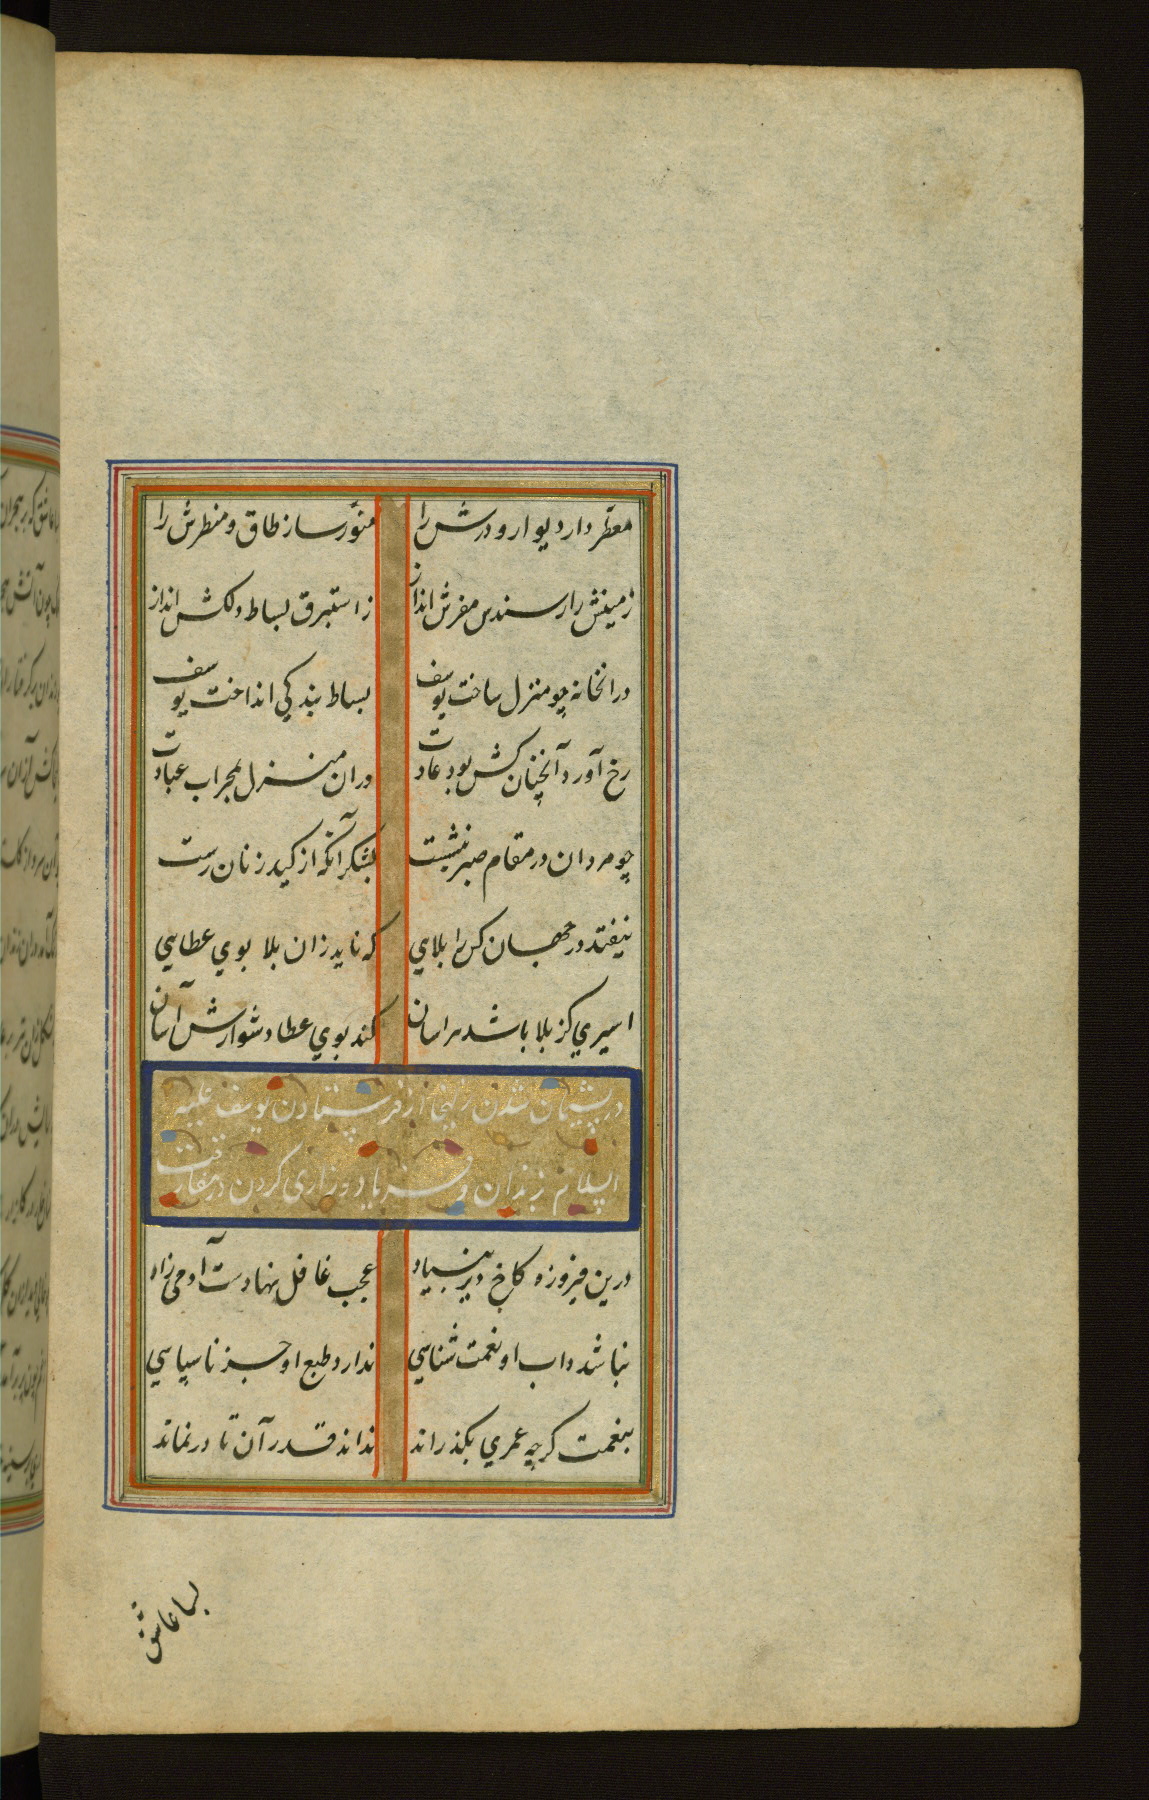 معطر دار دیوار و درش را منور ساز طاق و منظرش را
زمینش را ز سندس مفرش انداز ز استبرق بساط دلکش انداز
درانخانه چو منزل ساخت یوسف بساط بندکی انداخت یوسف
رخ آورد آنچنان کش بود عادت دران منزل بمحراب عبادت
چو مردان در مقام صبر بنشست بشکر آنکه از کید زنان رست
نیفتد در جهان کس را بلایی که ناید زان بلا بوی عطایی
اسیری کز بلا باشد هراسان کند بوی عطا دشوارش آسان
در پشیمان شدن زلیخا از فرستادن یوسف علیه
السلام بزندان و فریاد و زاری کردن در مفارقت
درین فیروزه کاخ دیر بنیاد عجب غافل نهادست آدمی زاد
نباشد داب او نعمت شناسی ندارد طبع او جز ناسپاسی
بنعمت کرچه عمری بکذراند نداند قدر آن تا در نماند
بسا عاشق